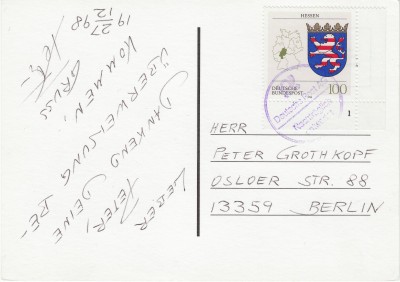 LIEBER
PETER,
DANKEND DEINE
ÜBERWEISUNG BE-
KOMMEN.
GRUSS
19 27/12 98
HESSEN
DEUTSCHE
BUNDESPOST
100
1
HERR
PETER GROTHKOPF
OSLOER STR. 88
13359 BERLIN